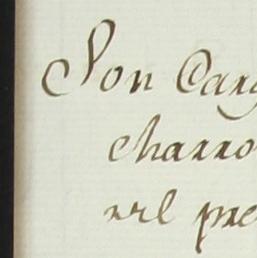 Son Carg
charro
nrl pre